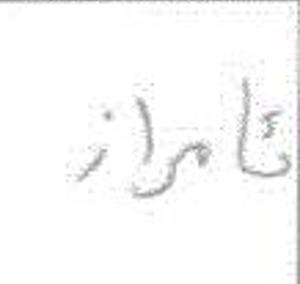 ئامراز